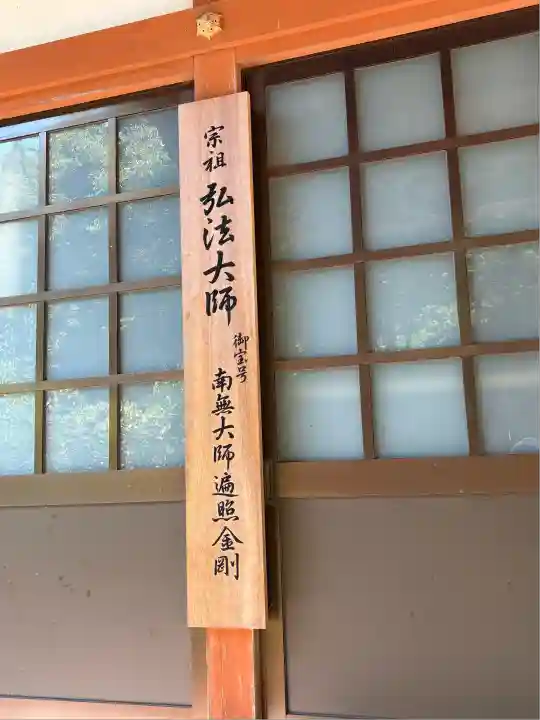 宗祖 弘法大師
御宝号
南無大師遍照金剛